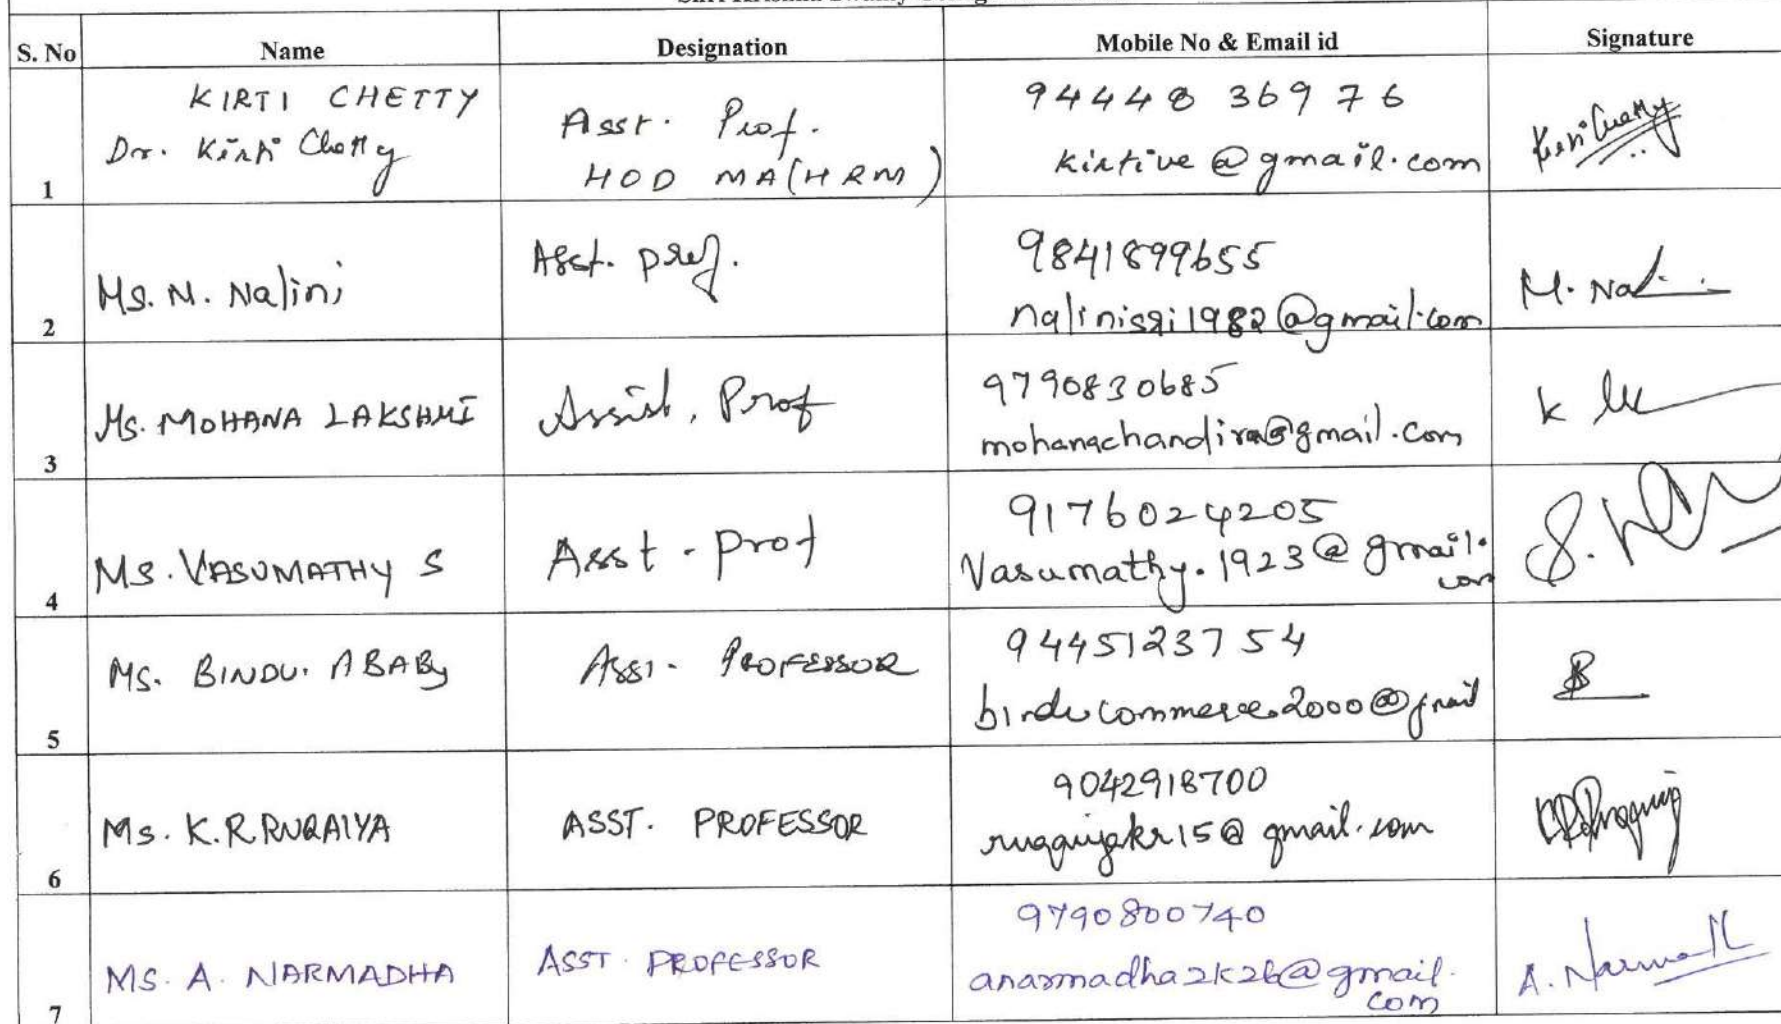 S. No Name Designation Mobile No & Email id Signature
KIRTI CHETTY
Dr. Kirti Chetty
Asst. Prof.
HOD MA(HRM)
94448 36976
kirtive@gmail.com
1
Ms. N. Nalini
Asst. prof.
9841899655
nalinisri1982@gmail.com
M. Nal
2
Ms. MOHANA LAKSHMI
Assist. Prof
9790830685
mohanachandira@gmail.com
K
3
Ms. VASUMATHY S
Asst - prof
9176024205
Vasumathy.1923@gmail.
com
S.
4
Ms. BINDU. ABABy
Asst. PROFESSOR
9445123754
binducommerce2000@gmail
5
Ms. K.R RUQAIYA
ASST. PROFESSOR
9042918700
ruqaiyakr15@gmail.com
6
MS. A. NARMADHA
ASST. PROFESSOR
9790800740
anarmadha2k26@gmail.
com
A. Narmadh
7